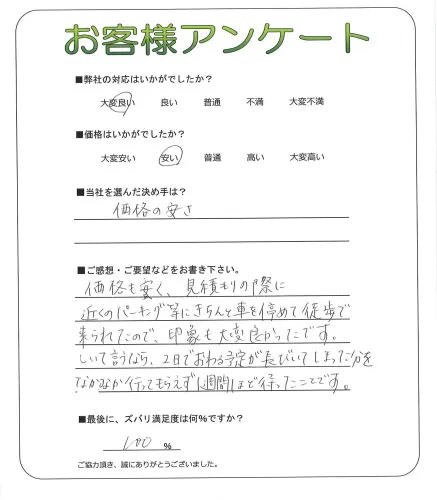 お客様アンケート
■弊社の対応はいかがでしたか？
大変良い 良い 普通 不満 大変不満
■価格はいかがでしたか？
大変安い 安い 普通 高い 大変高い
■当社を選んだ決め手は？
価格の安さ
■ご感想・ご要望などをお書き下さい。
価格も安く、見積もりの際に
近くのパーキング等にきちんと車を停めて徒歩で
来られたので、印象も大変良かったです。
しいて言うなら、2日でおわる予定が長びいてしまった分を
なかなか行ってもらえず1週間ほど待ったことです。
■最後に、ズバリ満足度は何%ですか？
100 %
ご協力頂き、誠にありがとうございました。